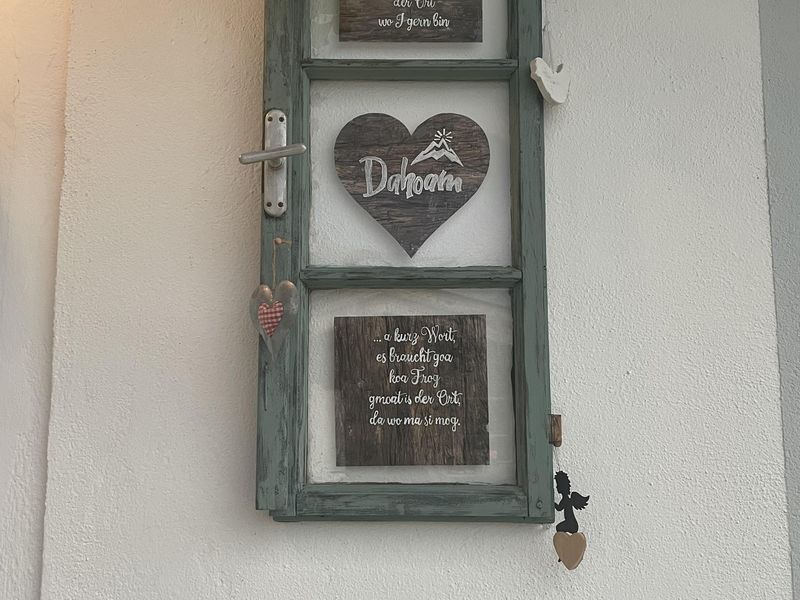 der Ort
wo I gern bin
Dahoam
... a kurz Wort,
es braucht goa
koa Frog
gmoat is der Ort,
da wo ma si mog.